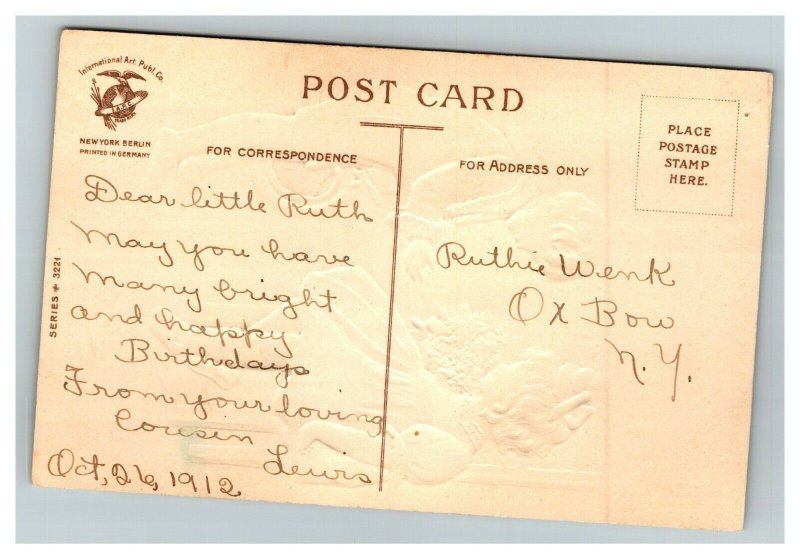 International Art Publ. Co.
NEW YORK BERLIN
PRINTED IN GERMANY
POST CARD
FOR CORRESPONDENCE
FOR ADDRESS ONLY
PLACE
POSTAGE
STAMP
HERE.
SERIES # 3221
Dear little Ruth
May you have
many bright
and happy
Birthdays
From your loving
Cousin
Lewis
Oct, 26, 1912
Ruthie Wenk
Ox Bow
N.Y.